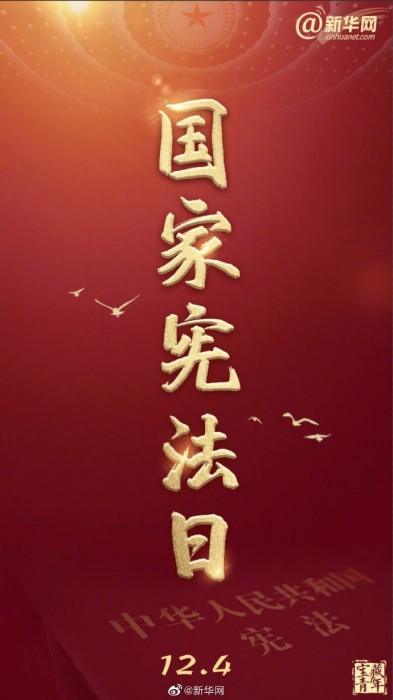 @新华网
xinhuanet.com
国家宪法日
中华人民共和国
宪法
12.4
@新华网